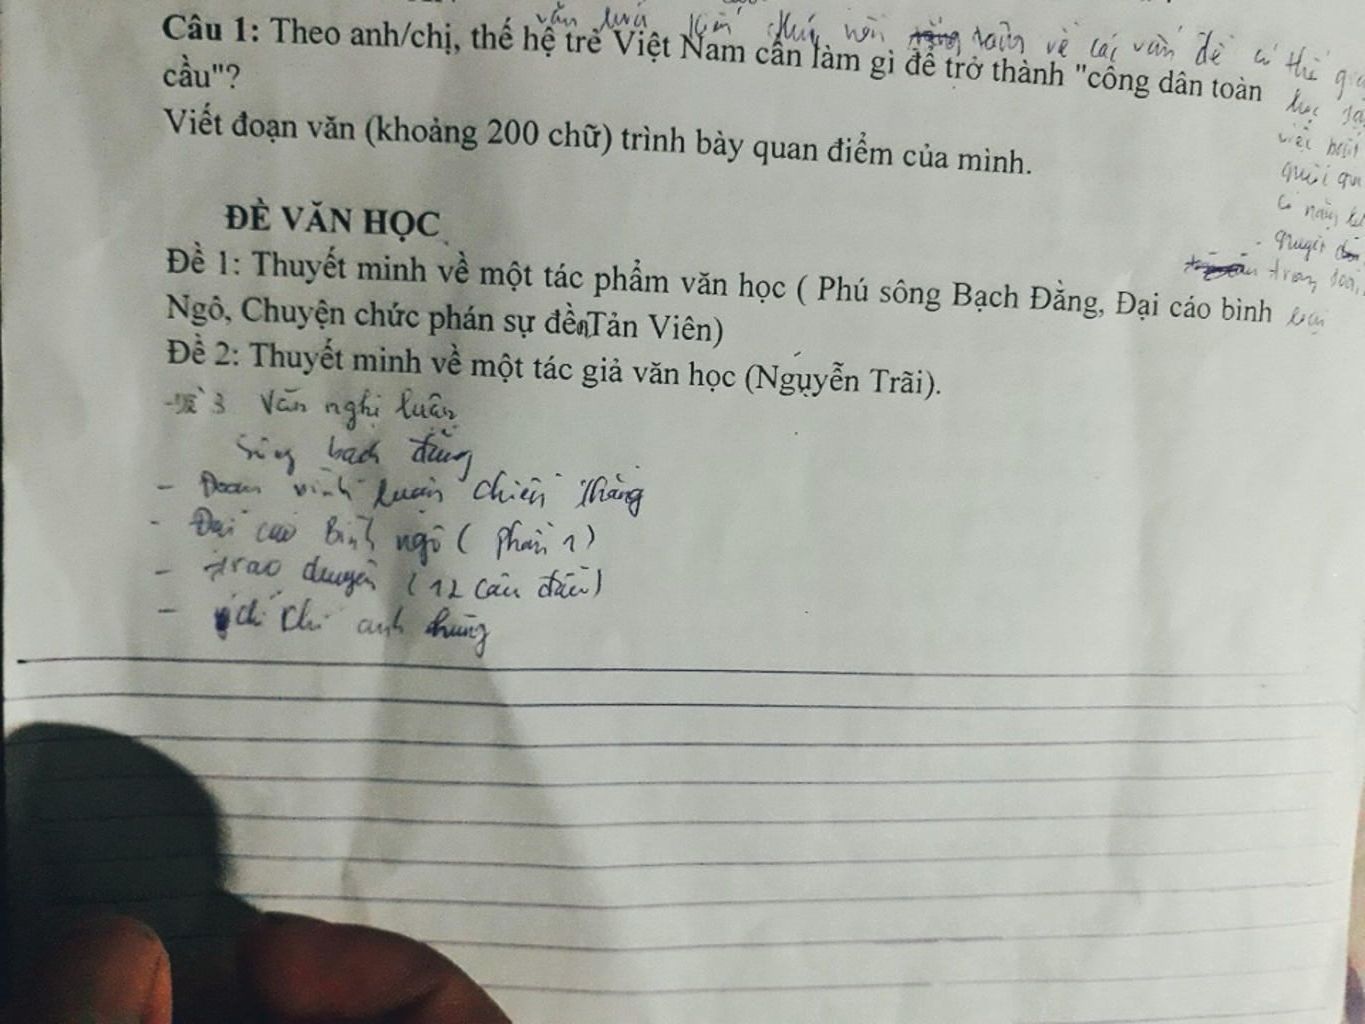 văn hoá kiến thức nền tảng về các vấn đề
Câu 1: Theo anh/chị, thế hệ trẻ Việt Nam cần làm gì để trở thành "công dân toàn
cầu"?
Viết đoạn văn (khoảng 200 chữ) trình bày quan điểm của mình.
ĐỀ VĂN HỌC
Đề 1: Thuyết minh về một tác phẩm văn học ( Phú sông Bạch Đằng, Đại cáo bình
Ngô, Chuyện chức phán sự đền Tản Viên)
Đề 2: Thuyết minh về một tác giả văn học (Nguyễn Trãi).
Đề 3 Văn nghị luận
Sông bạch đằng
- Đoạn bình luận chiến thắng
- Đại cáo Bình ngô ( phần 1)
- trao duyên ( 12 câu đầu)
- chí khí anh hùng